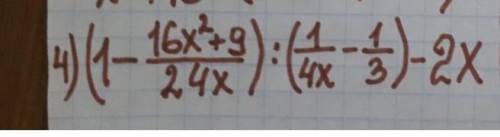 4) (1 - (16x² + 9)/(24x)) : (1/(4x) - 1/3) - 2x